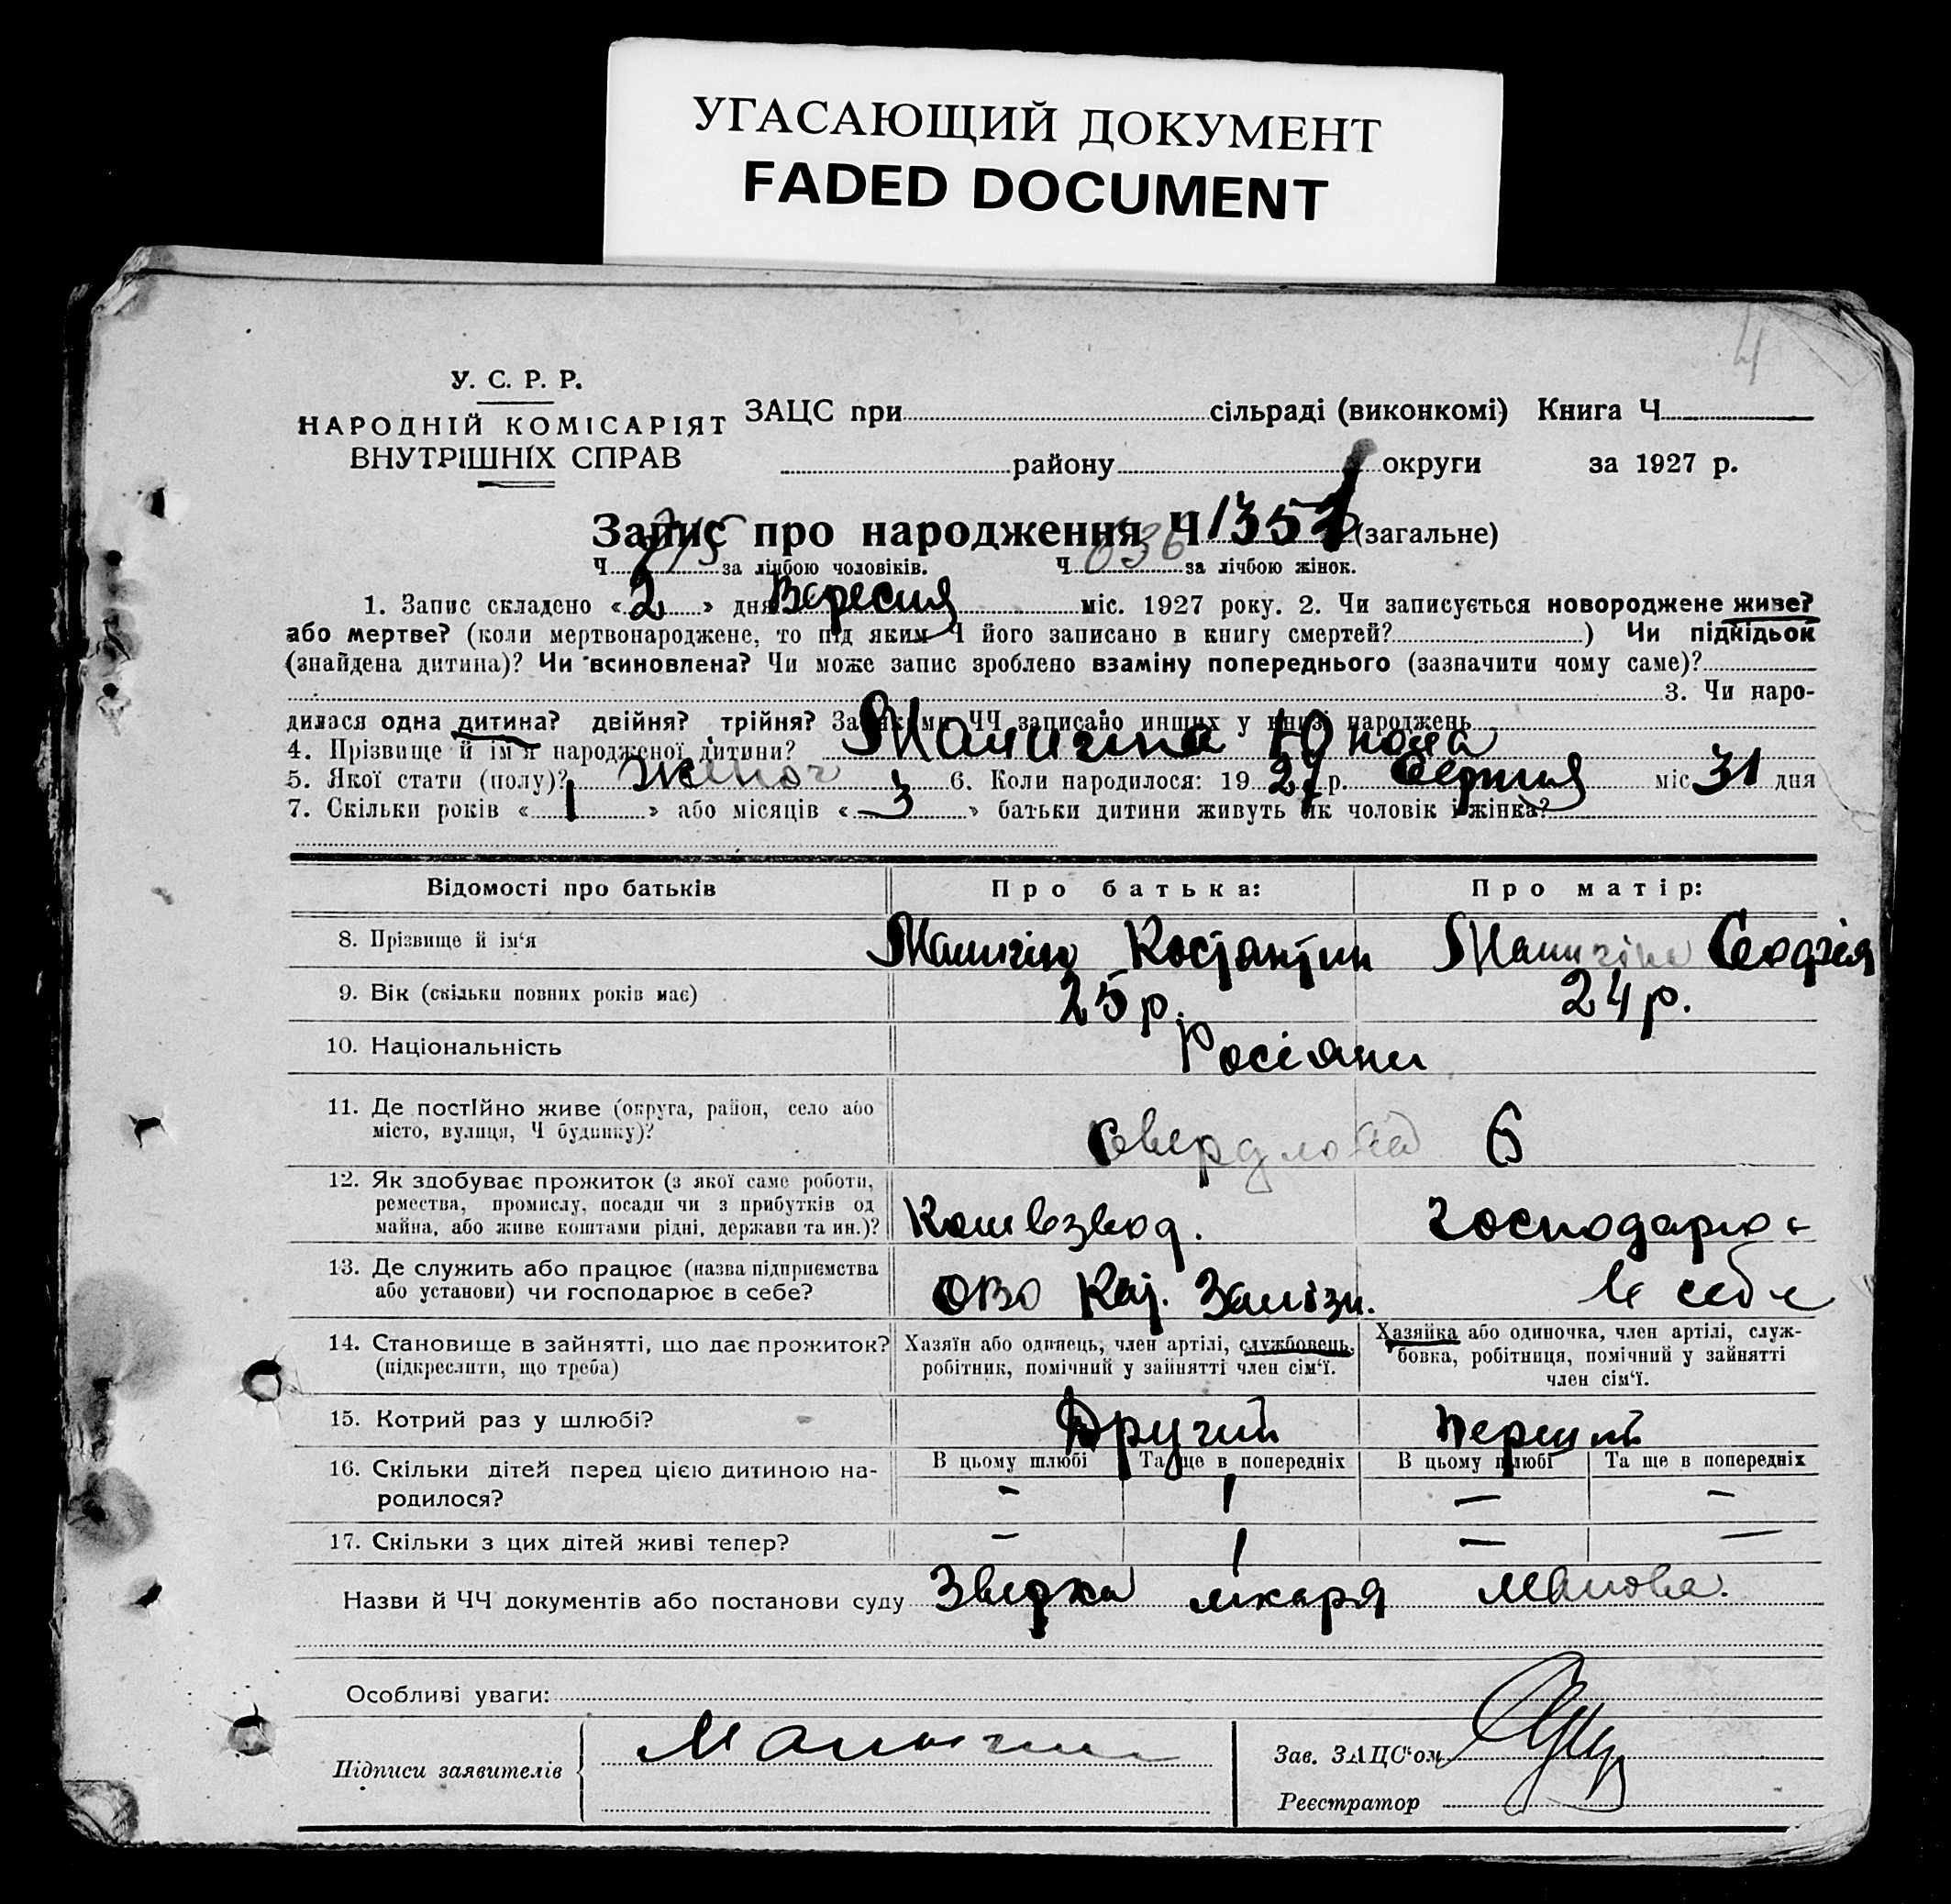 УГАСАЮЩИЙ ДОКУМЕНТ
FADED DOCUMENT
4
У. С. Р. Р.
НАРОДНІЙ КОМІСАРІЯТ
ВНУТРІШНІХ СПРАВ
ЗАЦС при сільраді (виконкомі) Книга Ч.
району округи за 1927 р.
Запис про народження Ч 1351 (загальне)
Ч. 715 за лічбою чоловіків. Ч. 636 за лічбою жінок.
1. Запис складено « 2 » дня Вересня міс. 1927 року. 2. Чи записується новороджене живе?
або мертве? (коли мертвонароджене, то під яким Ч його записано в книгу смертей? ) Чи підкідьок
(знайдена дитина)? Чи всиновлена? Чи може запис зроблено взаміну попереднього (зазначити чому саме)?
3. Чи наро-
дилася одна дитина? двійня? трійня? За якими ЧЧ записано инших у книзі народжень
4. Прізвище й ім'я народженої дитини? Маничіна
5. Якої стати (полу)? жіноч 6. Коли народилося: 19 27 р. Серпня міс 31 дня
7. Скільки років « 1 » або місяців « 3 » батьки дитини живуть як чоловік і жінка?
Відомості про батьків Про батька: Про матір:
8. Прізвище й ім'я Костянтин
9. Вік (скільки повних років має) 25 р. 24 р.
10. Національність Росіяни
11. Де постійно живе (округа, район, село або
місто, вулиця, Ч будинку)? Свердлова 6
12. Як здобуває прожиток (з якої саме роботи,
ремества, промислу, посади чи з прибутків од
майна, або живе коштами рідні, держави та ин.)? Комвзвод. господарює
13. Де служить або працює (назва підприємства
або установи) чи господарює в себе? ОВО Кат. Залізн. в себе
14. Становище в зайнятті, що дає прожиток?
(підкреслити, що треба)
Хазяїн або одинець, член артілі, службовець,
робітник, помічний у зайнятті член сім'ї.
Хазяйка або одиночка, член артілі, служ-
бовка, робітниця, помічний у зайнятті
член сім'ї.
15. Котрий раз у шлюбі? Другий Перший
16. Скільки дітей перед цією дитиною на-
родилося?
В цьому шлюбі Та ще в попередніх В цьому шлюбі Та ще в попередніх
– 1 – –
17. Скільки з цих дітей живі тепер? – 1 – –
Назви й ЧЧ документів або постанови суду лікаря
Особливі уваги:
Підписи заявителів
Зав. ЗАЦС'ом
Реєстратор